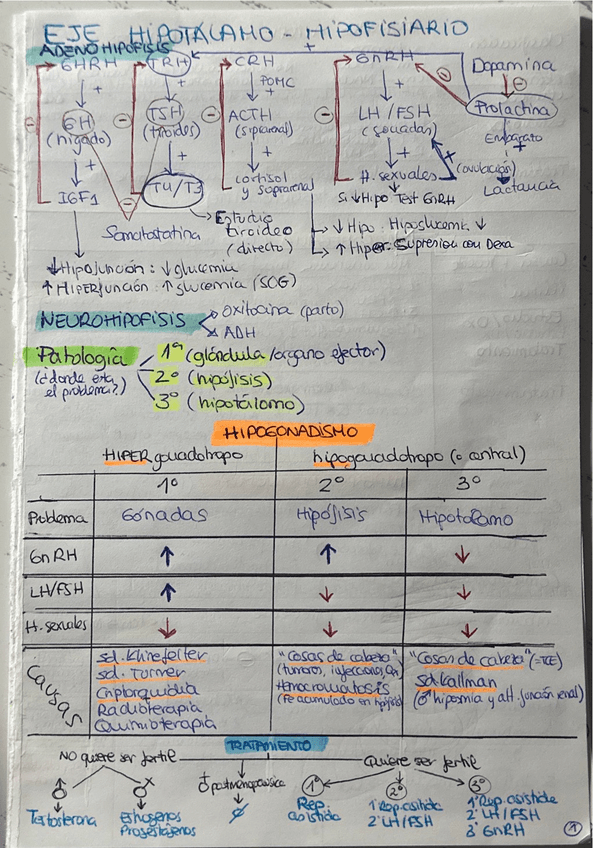 EJE HIPOTÁLAMO - HIPOFISIARIO
ADENOHIPÓFISIS
GHRH TRH CRH + GnRH Dopamina
+ + POMC + + ⊖
⊖ GH (hígado) ⊖ TSH (tiroides) ⊖ ACTH (suprarrenal) ⊖ LH/FSH (gónadas) ⊖ Prolactina
+ + + + Embarazo +
IGF1 T4/T3 cortisol y suprarrenal H. sexuales (ovulación) Lactancia
Somatostatina
Si ↓ Hipo Test GnRH
Estudio tiroideo (directo)
↓ Hipo: Hipoglucemi. ↓
↑ Hiper: Supresión con Dexa
↓ Hipofunción: ↓ glucemia
↑ HIPERfunción: ↑ glucemia (SOG)
NEUROHIPÓFISIS
Oxitocina (parto)
ADH
Patología
(¿donde está el problema?)
1º (glándula/órgano efector)
2º (hipófisis)
3º (hipotálamo)
HIPOGONADISMO
HIPERgonadotropo hipogonadotropo (o central)
1º 2º 3º
Problema Gónadas Hipófisis Hipotálamo
GnRH ↑ ↑ ↓
LH/FSH ↑ ↓ ↓
H. sexuales ↓ ↓ ↓
Causas
sd. Klinefelter
sd. Turner
Criptorquidia
Radioterapia
Quimioterapia
"Cosas de cabeza"
(tumores, infecciones, Qx)
Hemocromatosis
(Fe acumulado en hipófisis)
"Cosas de cabeza" (=TCE)
sd. Kallman
(♂ hiposmia y alt. función renal)
TRATAMIENTO
No quiere ser fértil Quiere ser fértil
♂ ♀ ♀ postmenopáusica 1º 2º 3º
Testosterona
Estrógenos
Progestágenos
∅
Rep. asistida
1º Rep. asistida
2º LH/FSH
1º Rep. asistida
2º LH/FSH
3º GnRH
1